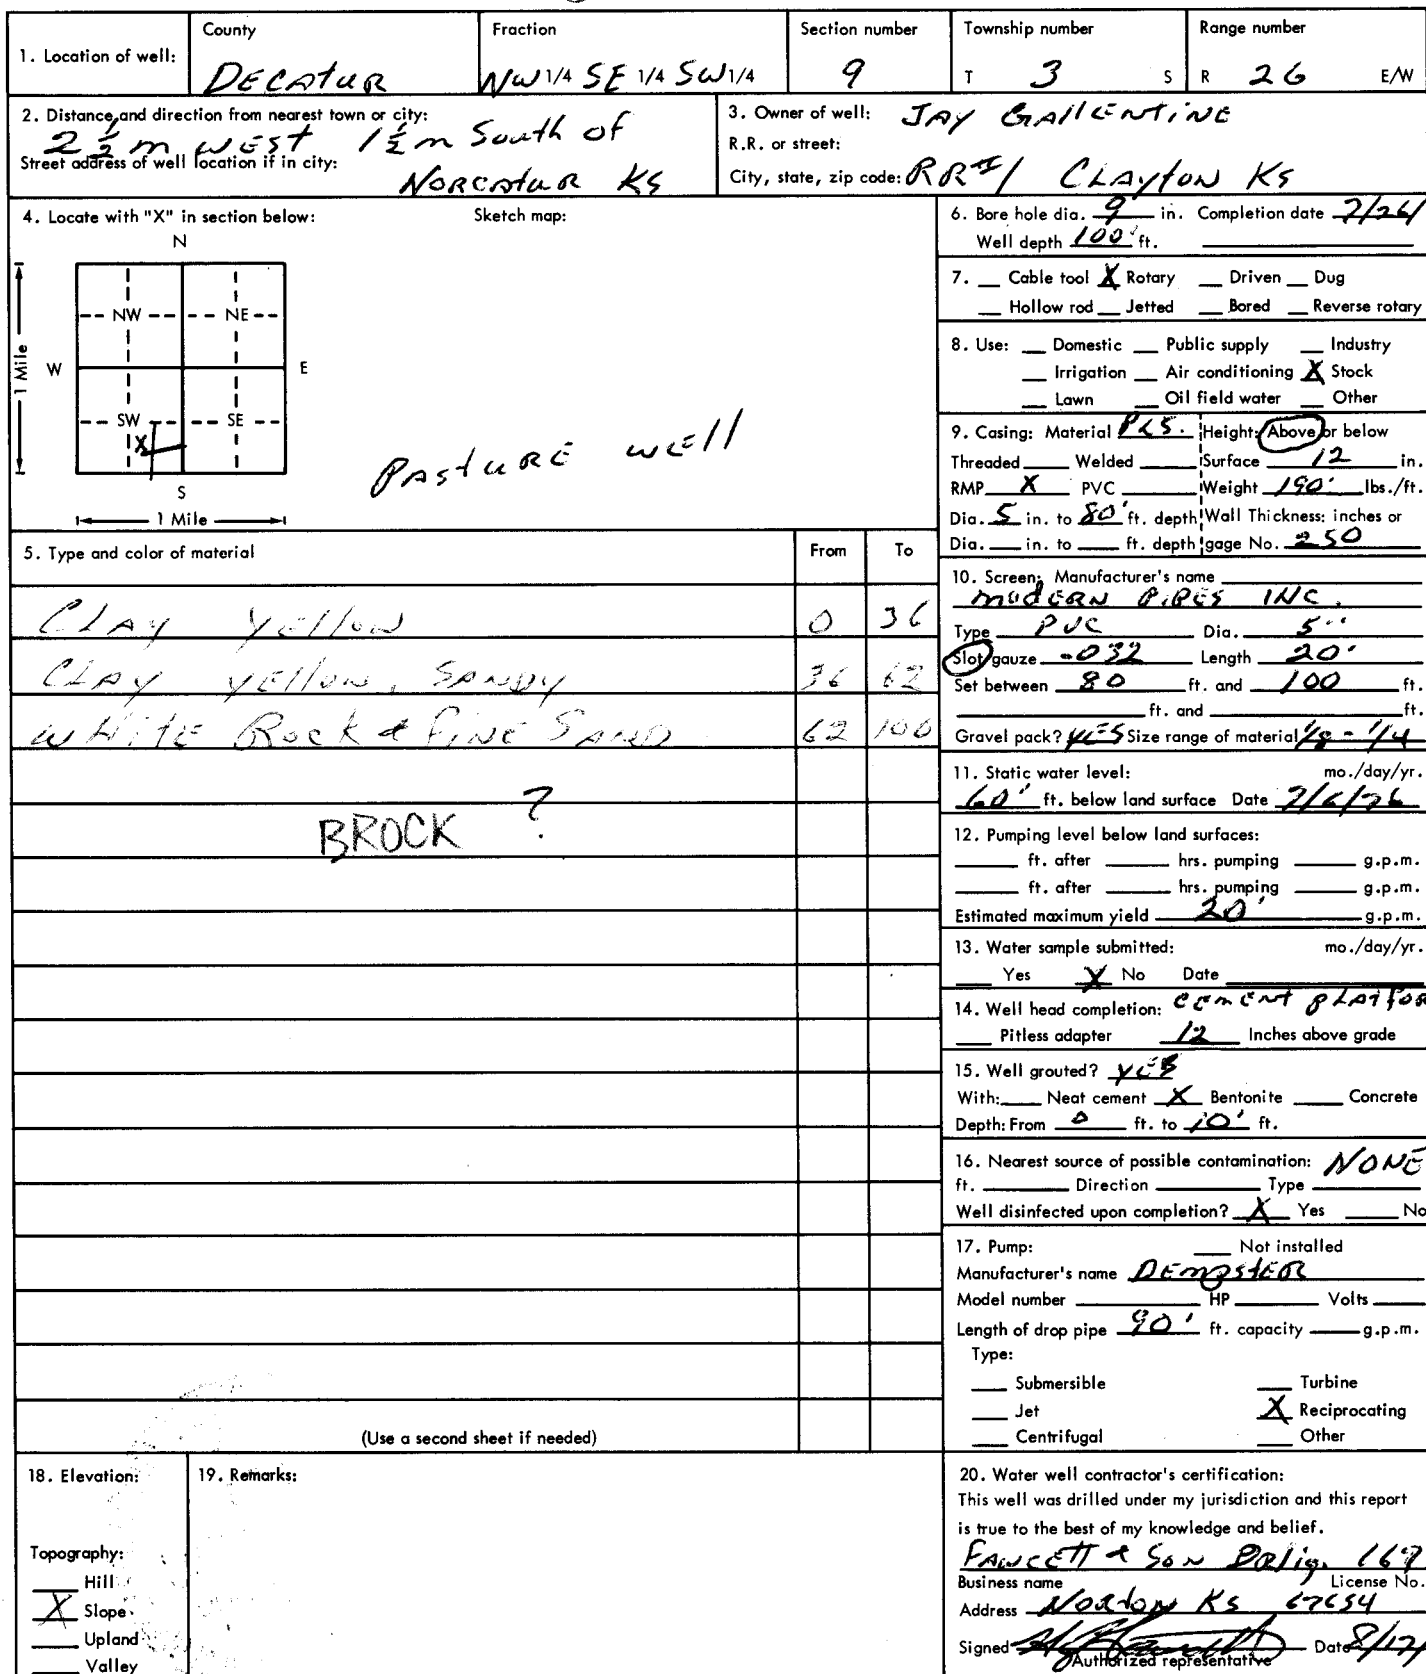 1. Location of well:
County
DECATUR
Fraction
NW 1/4 SE 1/4 SW 1/4
Section number
9
Township number
T 3 S
Range number
R 26 E/W
2. Distance and direction from nearest town or city:
2 1/2 m WEST 1 1/2 m South of
Street address of well location if in city:
NORCATUR KS
3. Owner of well: JAY GALLENTINE
R.R. or street:
City, state, zip code: RR#1 CLAYTON KS
4. Locate with "X" in section below:
Sketch map:
N
NW NE
W E
1 Mile
SW SE
X
S
1 Mile
PASTURE WELL
5. Type and color of material From To
CLAY YELLOW 0 36
CLAY YELLOW, SANDY 36 62
WHITE ROCK & FINE SAND 62 100
BROCK ?
(Use a second sheet if needed)
6. Bore hole dia. 9 in. Completion date 7/26/
Well depth 100' ft.
7. Cable tool X Rotary Driven Dug
Hollow rod Jetted Bored Reverse rotary
8. Use: Domestic Public supply Industry
Irrigation Air conditioning X Stock
Lawn Oil field water Other
9. Casing: Material PLS. Height: Above or below
Threaded Welded Surface 12 in.
RMP X PVC Weight 190' lbs./ft.
Dia. 5 in. to 80' ft. depth Wall Thickness: inches or
Dia. in. to ft. depth gage No. 250
10. Screen: Manufacturer's name
MODERN PIPES INC.
Type PVC Dia. 5"
Slot/gauze .032 Length 20'
Set between 80 ft. and 100 ft.
ft. and ft.
Gravel pack? YES Size range of material 1/8 - 1/4
11. Static water level: mo./day/yr.
60' ft. below land surface Date 7/6/76
12. Pumping level below land surfaces:
ft. after hrs. pumping g.p.m.
ft. after hrs. pumping g.p.m.
Estimated maximum yield 20' g.p.m.
13. Water sample submitted: mo./day/yr.
Yes X No Date
14. Well head completion: CEMENT PLATFOR
Pitless adapter 12 Inches above grade
15. Well grouted? YES
With: Neat cement X Bentonite Concrete
Depth: From 0 ft. to 10' ft.
16. Nearest source of possible contamination: NONE
ft. Direction Type
Well disinfected upon completion? X Yes No
17. Pump: Not installed
Manufacturer's name DEMPSTER
Model number HP Volts
Length of drop pipe 90' ft. capacity g.p.m.
Type:
Submersible Turbine
Jet X Reciprocating
Centrifugal Other
18. Elevation:
Topography:
Hill
X Slope
Upland
Valley
19. Remarks:
20. Water well contractor's certification:
This well was drilled under my jurisdiction and this report
is true to the best of my knowledge and belief.
FAWCETT & SON Drlig. 169
Business name License No.
Address NORTON KS 67654
Signed Date 8/17/
Authorized representative